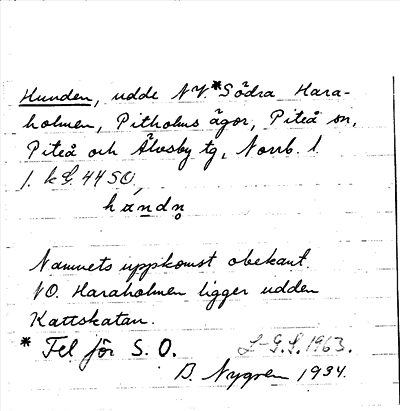 Hunden, udde NV.*Södra Hara-
holmen, Pitholms ägor, Piteå sn,
Piteå och Älvsby tg, Norrb. l.
J. kG. 44 SO,
hɯndn̥
Namnets uppkomst obekant.
NO. Haraholmen ligger udden
Kattskatan.
* Fel för S. O. L-G.L. 1963.
B. Nygren 1934.